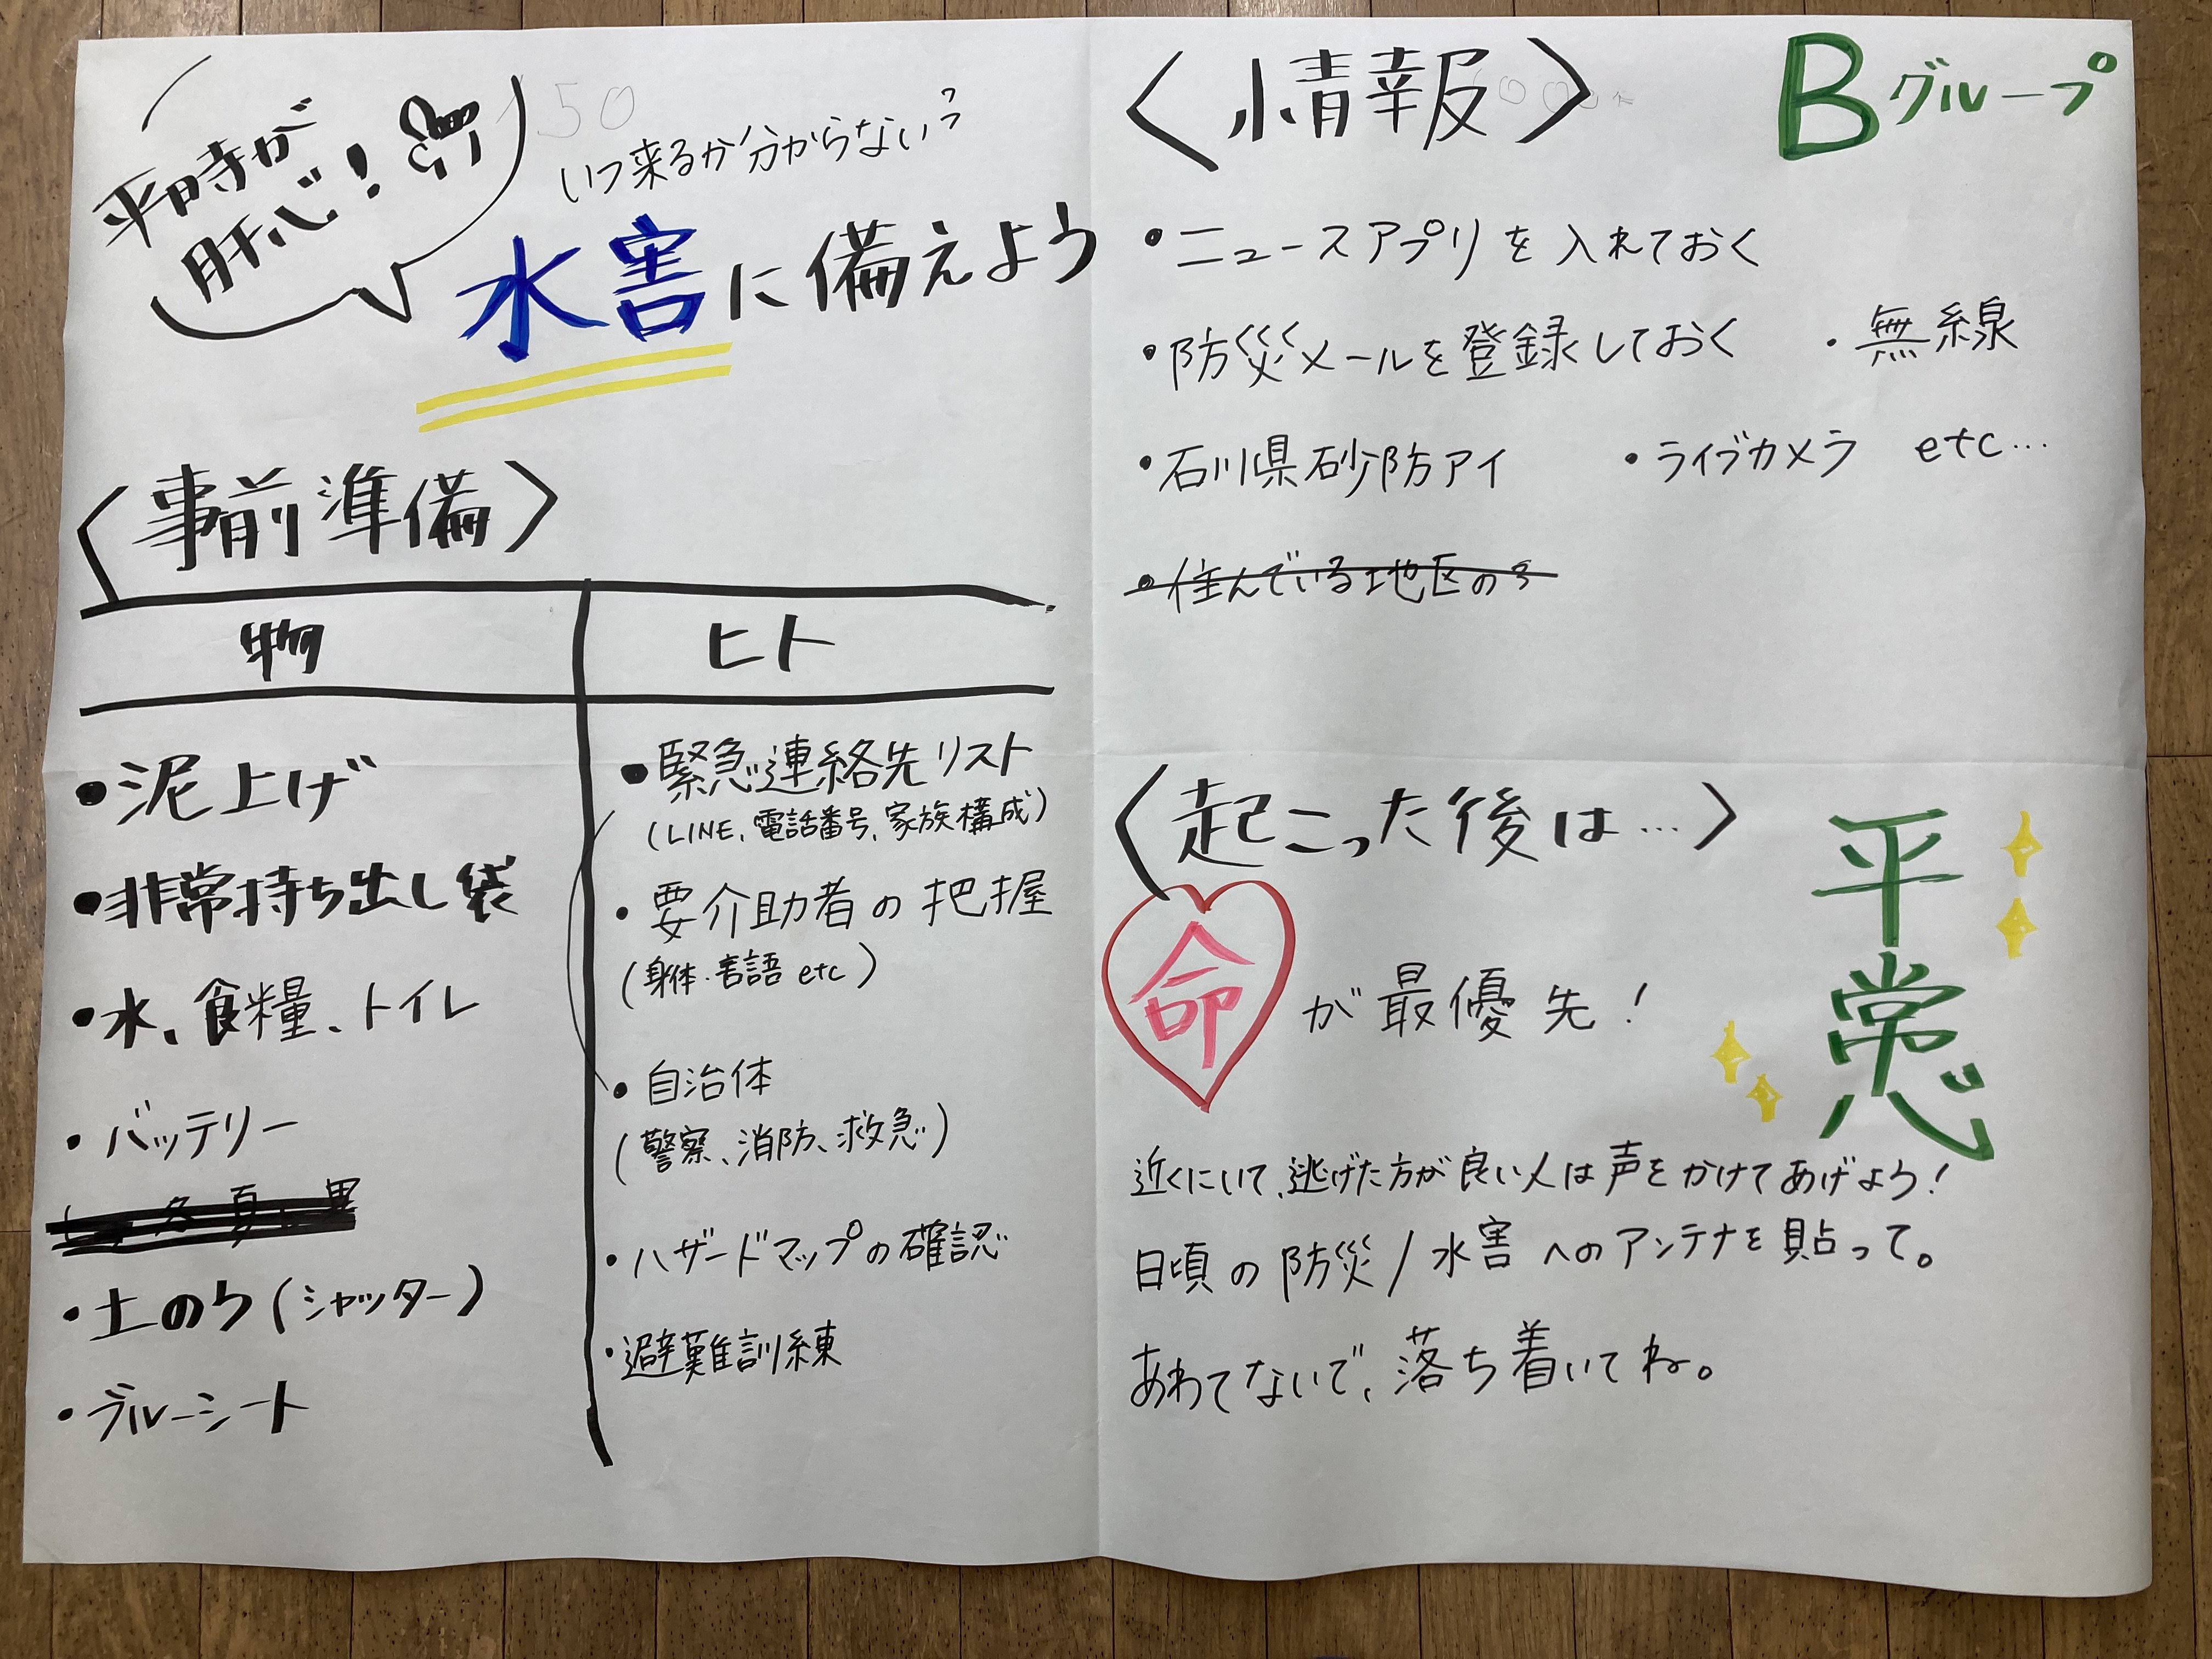 平時が
肝心!
いつ来るか分からない?
水害に備えよう
〈事前準備〉
物
ヒト
・泥上げ
・非常持ち出し袋
・水、食糧、トイレ
・バッテリー
・土のう(シャッター)
・ブルーシート
・緊急連絡先リスト
(LINE、電話番号、家族構成)
・要介助者の把握
(身体・言語 etc)
・自治体
(警察、消防、救急)
・ハザードマップの確認
・避難訓練
Bグループ
〈情報〉
・ニュースアプリを入れておく
・防災メールを登録しておく ・無線
・石川県砂防アイ ・ライブカメラ etc…
・住んでいる地区の
〈起こった後は…〉
命が最優先!
平常心
近くにいて、逃げた方が良い人は声をかけてあげよう!
日頃の防災/水害へのアンテナを貼って。
あわてないで、落ち着いてね。